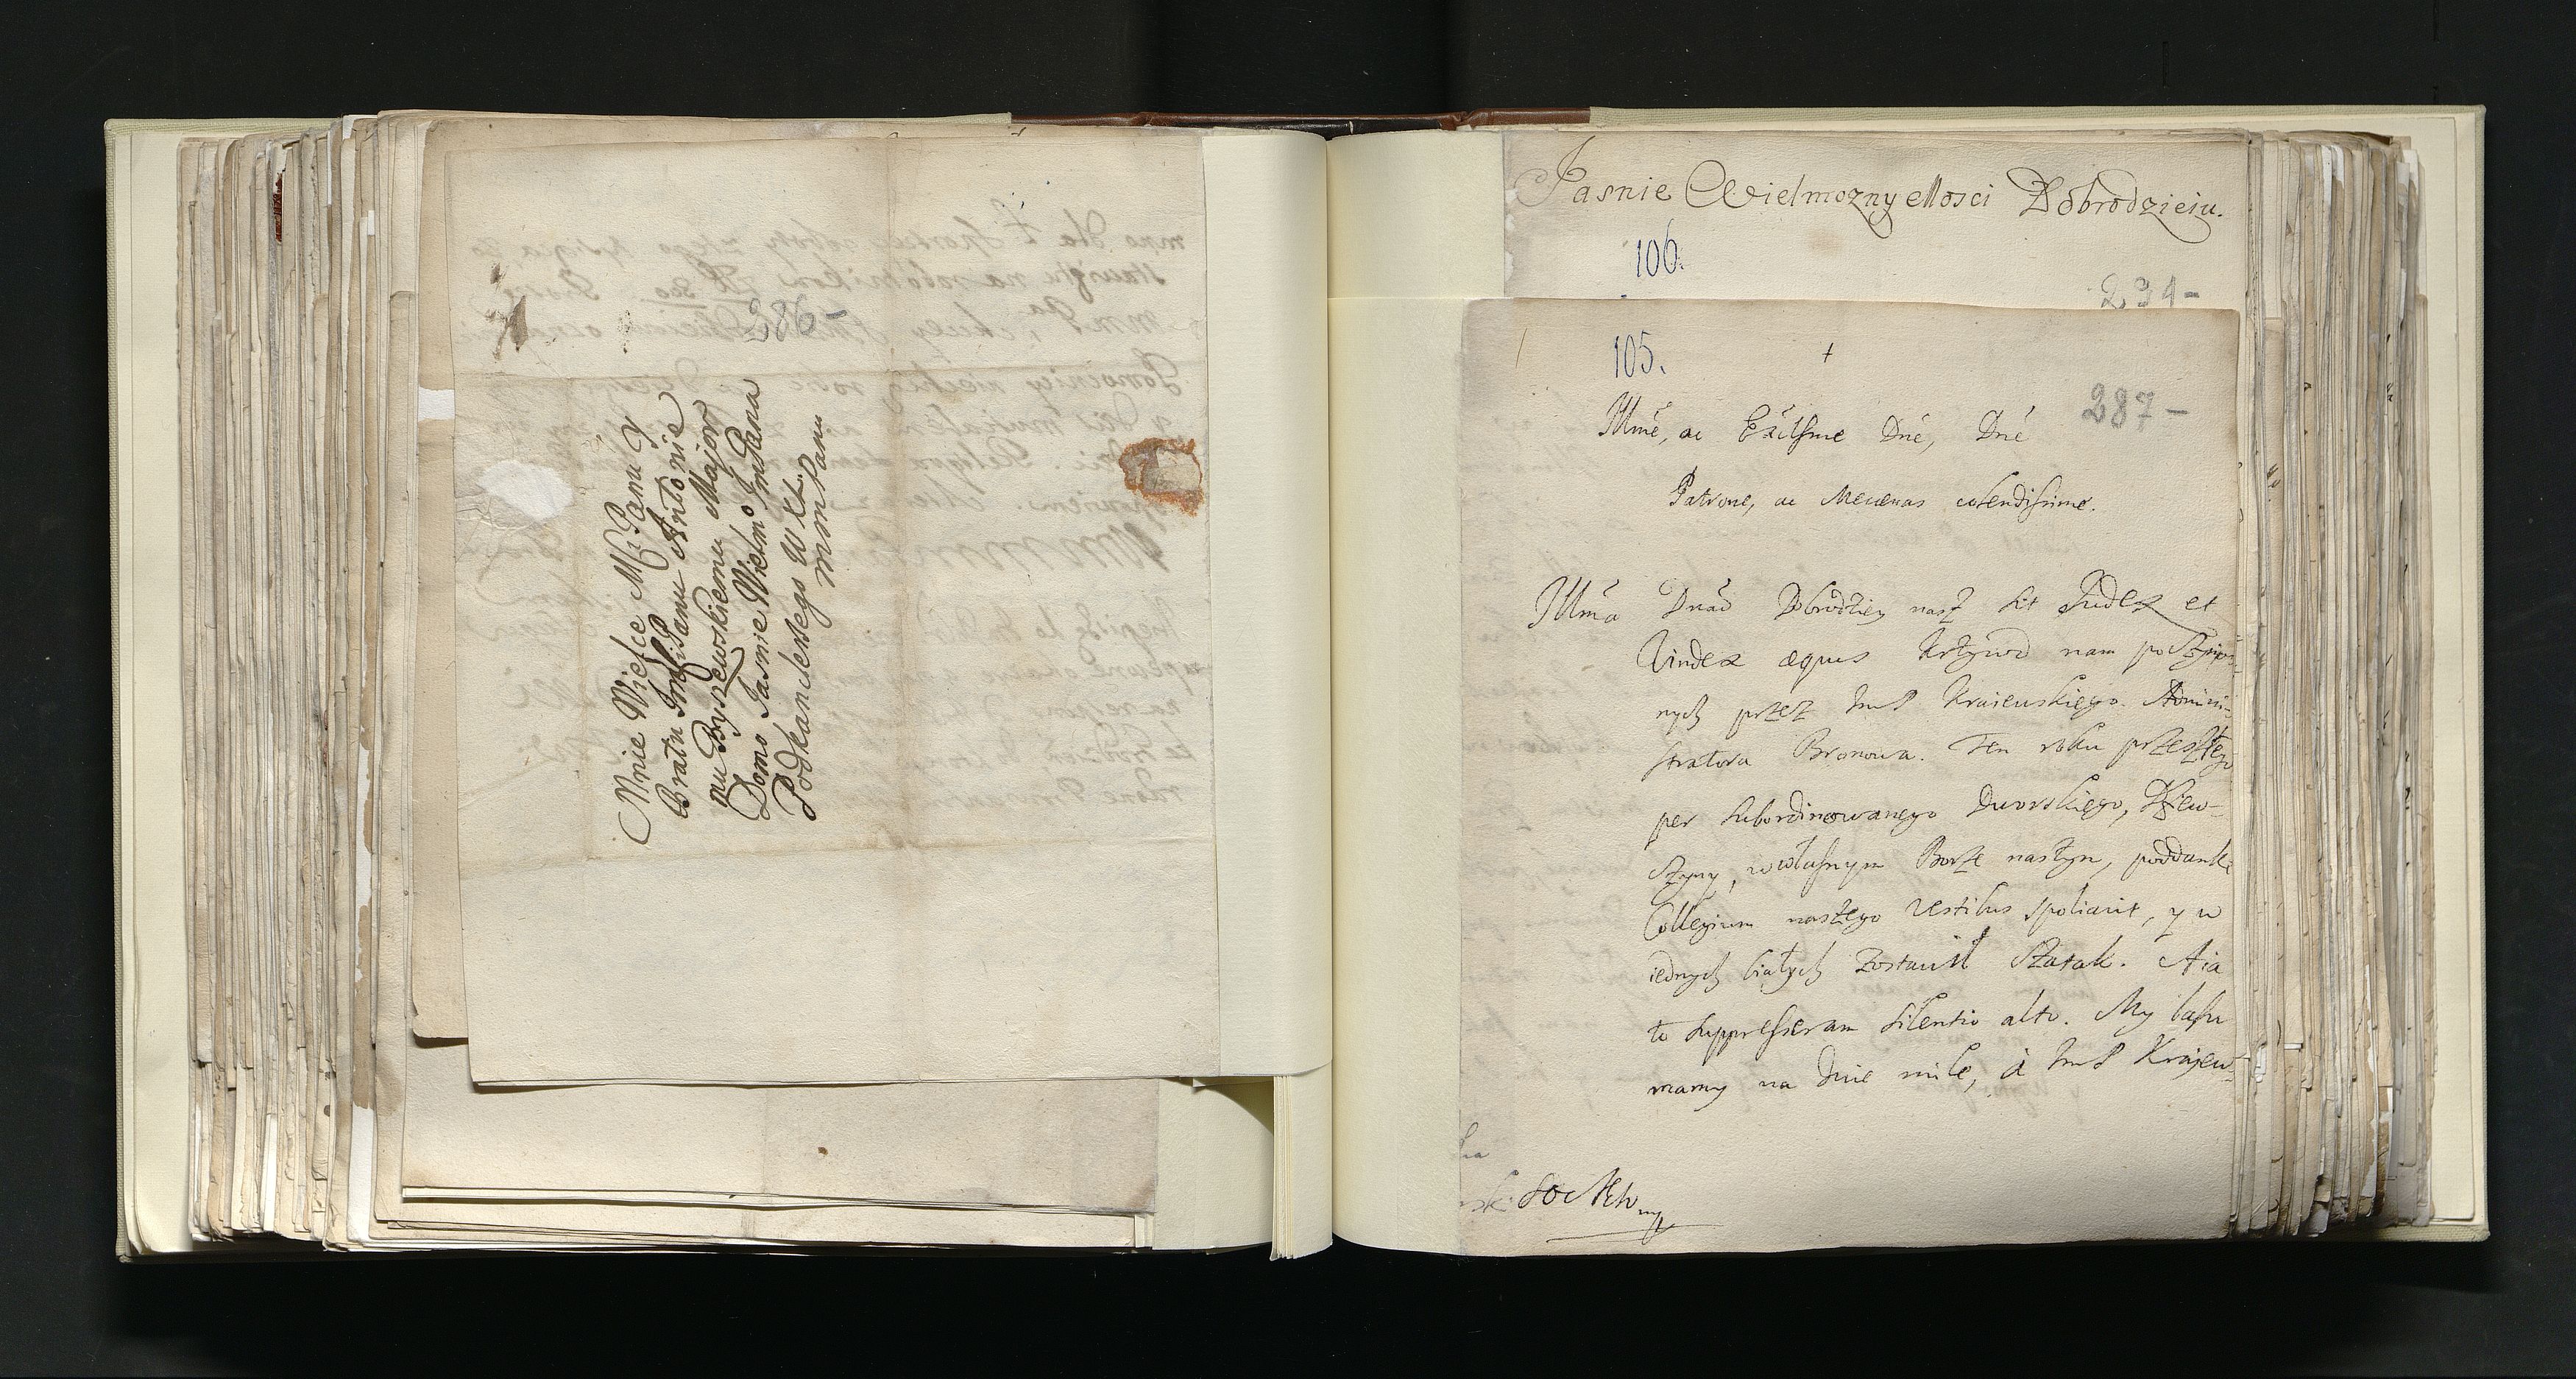 286-
Mnie Wielce Mci Panu y
Bratu JmCi Panu Antonie
mu Byszewskiemu Major
Domo Jasnie Wielmo JmPana
Podkanclerzego W XL.
mm Panu
Jasnie Wielmozny Mosci Dobrodzieiu.
106.
291-
105.
+
287-
Illmē, ac Excllsme Dnē, Dnē
Patrone, ac Mecœnas colendissime.
Illma Dnao Dobrodziey nasz sit Judex et
Vindex æquus krzywd nam poczynio-
nych przez JmP Kraiewskiego Admini-
stratora Bronowa. Ten roku przeszłego
per subordinowanego Dworskiego, Dziew-
czyny, w własnym Borze naszym, poddanki
Collegium naszego vestibus spoliavit, y w
iednych białych zostawił szatak. A ia
to suppresseram silentio alto. My lasu
mamy na dwie mile, à JmP Krajew-